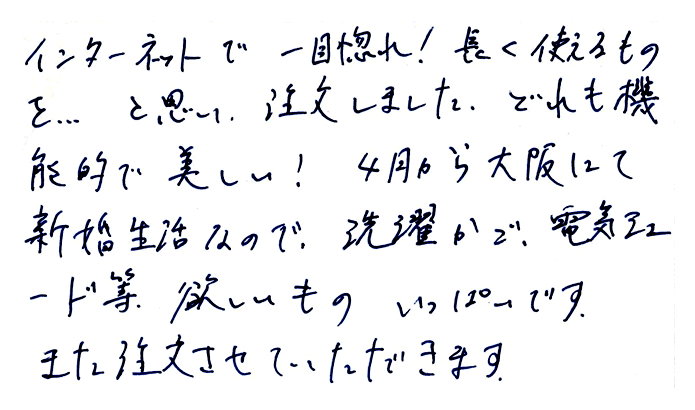 インターネットで 一目惚れ! 長く使えるもの
を… と思い、注文しました。どれも機
能的で美しい! 4月から大阪にて
新婚生活なので、洗濯かご、電気コ
ード等、欲しいもの いっぱいです。
また注文させていただきます。